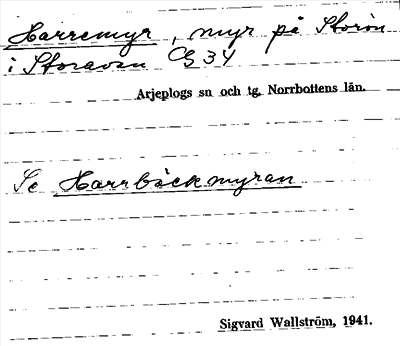 Harremyr, myr på Storön
i Storavan 34
Arjeplogs sn och tg, Norrbottens län.
Se Harrbäckmyran
Sigvard Wallström, 1941.